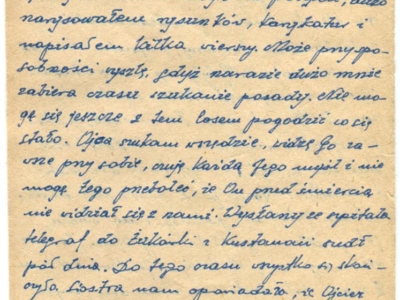 narysowałem rysunków, karykatur i
napisałem kilka wierszy. Może przy spo-
sobności wyszlę, gdyż narazie dużo mnie
zabiera czasu szukanie posady. Nie mo-
gę się jeszcze z tem losem pogodzić co się
stało. Ojca szukam wszędzie, widzę Go za-
wsze przy sobie, czuję każdą Jego myśl i nie
mogę tego przeboleć, że On przed śmiercią
nie widział się z nami. Wysłany ze szpitala
telegraf do z Kustanaii szedł
pół dnia. Do tego czasu wszystko się skoń-
czyło. Siostra nam opowiadała, że Ojciec